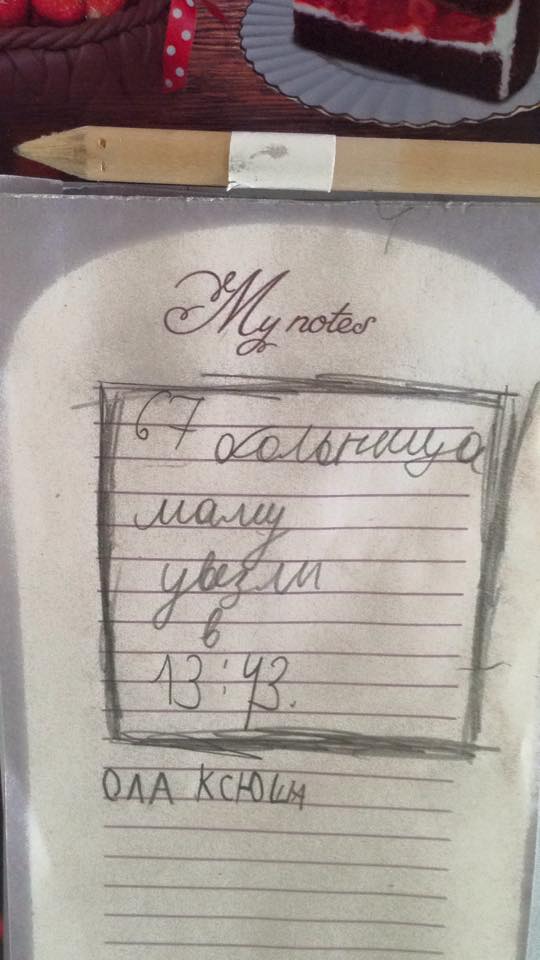 My notes
67 больница
маму
увезли
в
13:43.
ОЛА КСЮША